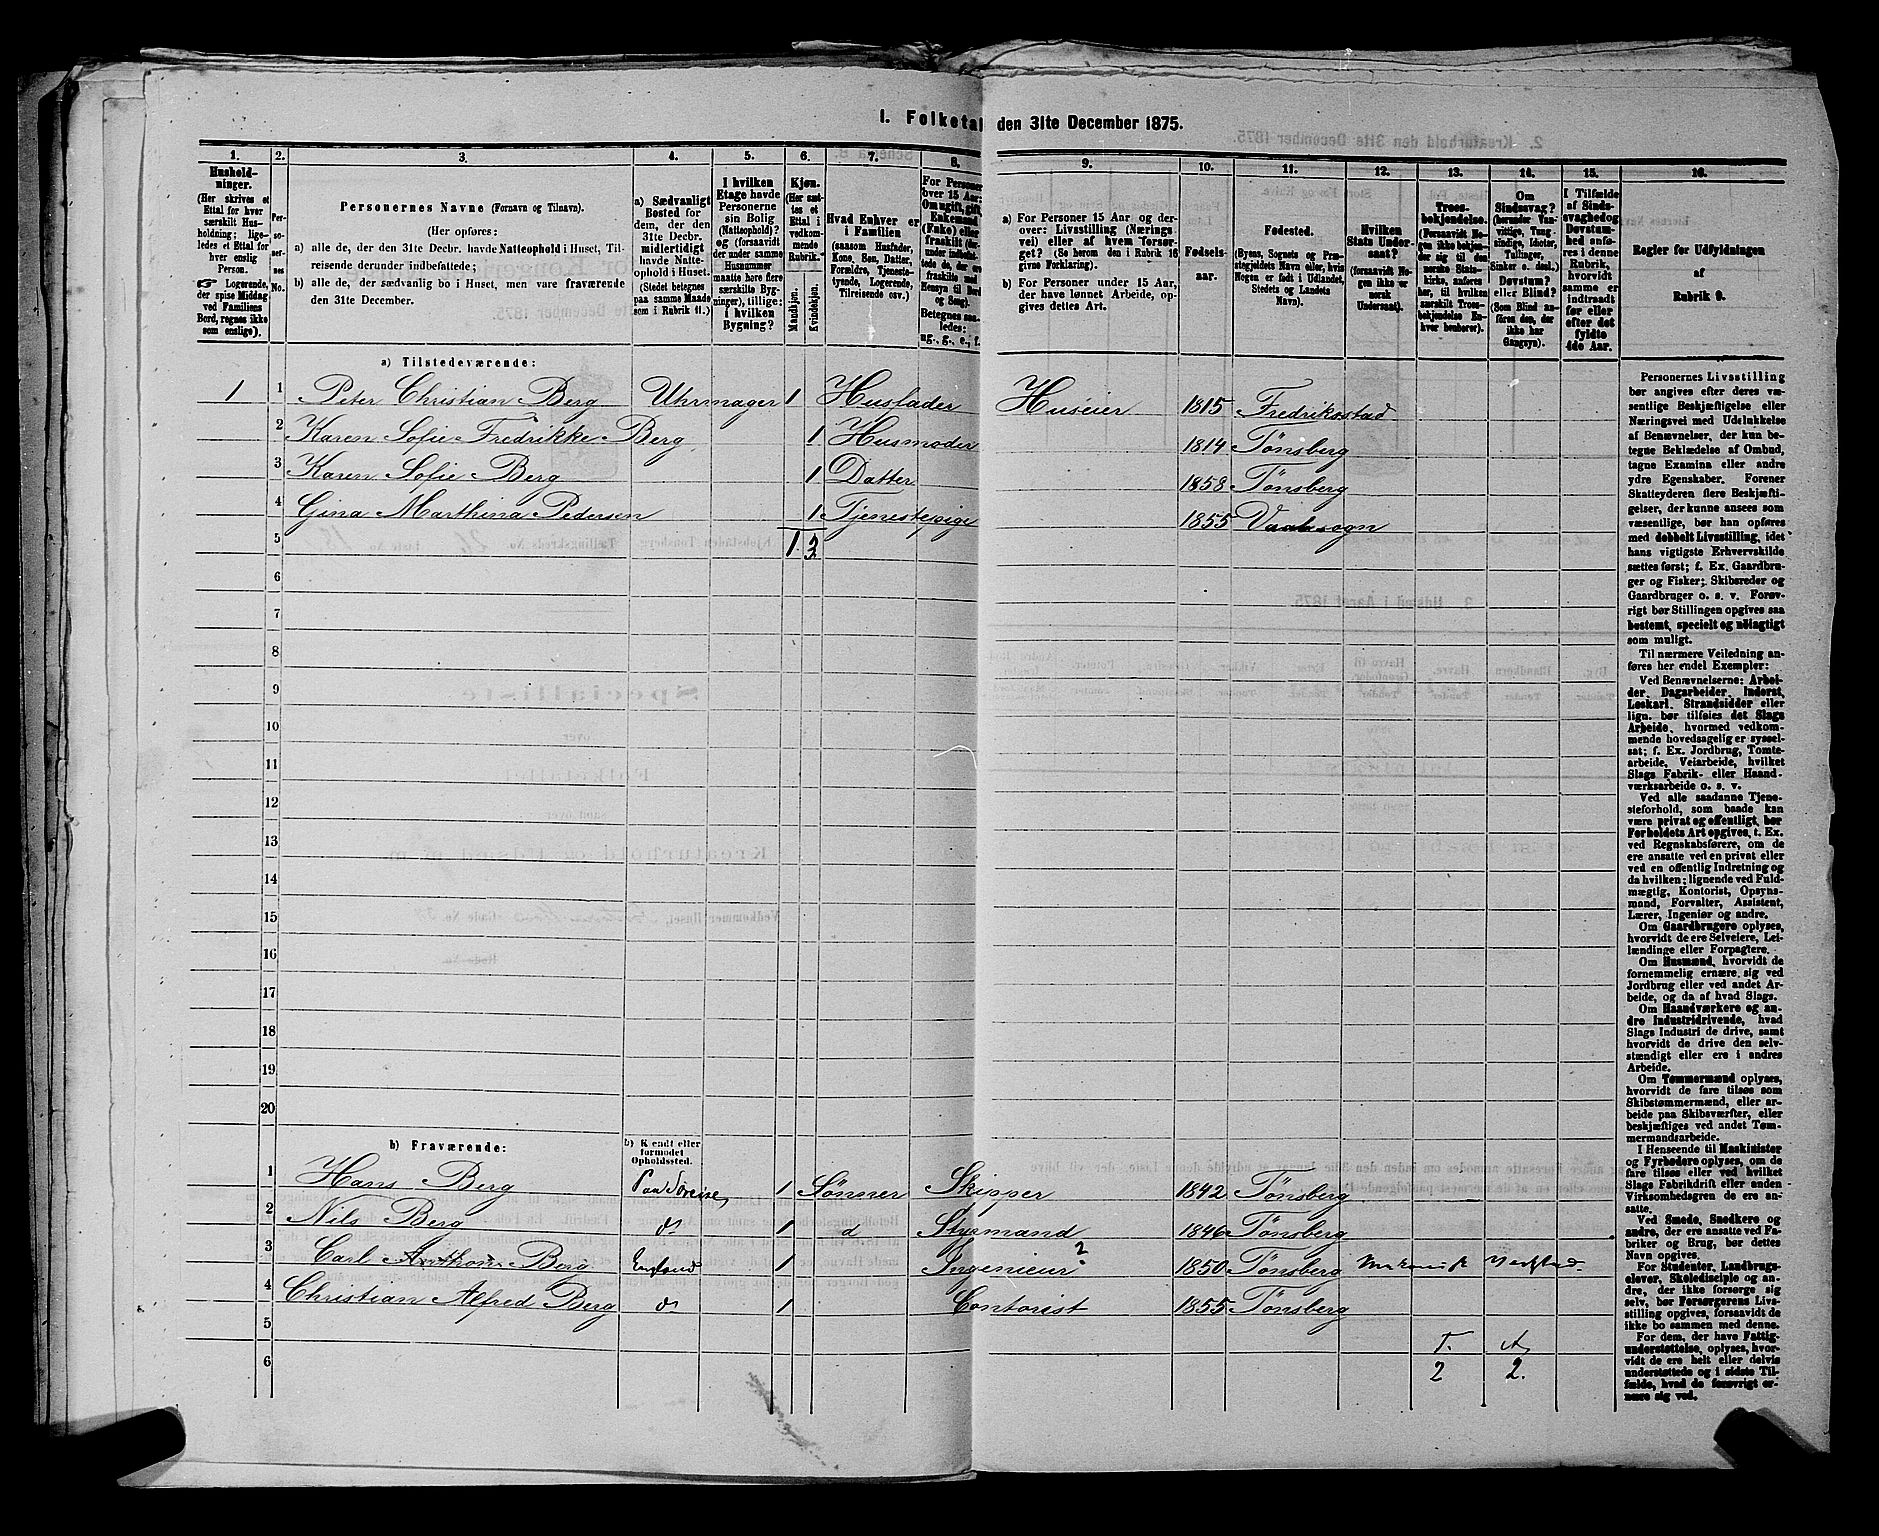 I. Folketal den 31te December 1875.
1. 2. 3. 4. 5. 6. 7. 8. 9. 10. 11. 12. 13. 14. 15. 16.
Hushold-
ninger.
(Her skrives et
Ettal for hver
særskilt Hus-
holdning; lige-
ledes et Ettal for
hver enslig
Person.
☞ Logerende,
der spise Middag
ved Familiens
Bord, regnes ikke
som enslige).
Per-
so-
ner-
nes
No.
Personernes Navne (Fornavn og Tilnavn).
(Her opføres:
a) alle de, der den 31te Decbr. havde Natteophold i Huset, Til-
reisende derunder indbefattede;
b) alle de, der sædvanlig bo i Huset, men vare fraværende
den 31te December.
a) Sædvanligt
Bosted for
dem, der den
31te Decbr.
midlertidigt
havde Natte-
ophold i Huset.
(Stedet betegnes
paa samme Maade
som i Rubrik 11.)
I hvilken
Etage havde
Personerne
sin Bolig
(Natteophold)?
og (forsaavidt
der under samme
Husnummer
maatte høre flere
særskilte Byg-
ninger), tillige:
i hvilken
Bygning?
Kjøn.
(Her sæt-
tes et
Ettal i
vedkom-
mende
Rubrik.)
Mandkjøn.
Kvindekjøn.
Hvad Enhver er
i Familien
(saasom Husfader,
Kone, Søn, Datter,
Forældre, Tjeneste-
tyende, Logerende,
Tilreisende osv.)
For Personer
over 15 Aar:
Om ugift, gift,
Enkemand
(Enke) eller
fraskilt
Betegnes saa-
ledes:
ug., g., e., f.
a) For Personer 15 Aar og der-
over: Livsstilling (Nærings-
vei) eller af hvem forsør-
get? (Se herom den i Rubrik 16
givne Forklaring).
b) For Personer under 15 Aar,
der have lønnet Arbeide, op-
gives dettes Art.
Fødsels-
aar.
Fødested.
(Byens, Sognets og Præ-
stegjeldets Navn eller, hvis
Nogen er født i Udlandet,
Stedets og Landets
Navn).
Hvilken
Stats Under-
saat?
(forsaavidt No-
gen ikke er
norsk
Undersaat).
Troes-
bekjendelse.
(Forsaavidt No-
gen ikke bekjen-
der sig til den
norske Stats-
kirke, anføres
her, til hvilken
særskilt Tros-
bekjendelse En-
hver henhører).
Om
Sindssvag?
(herunder Van-
vittige, Tung-
sindige, Idioter,
Tullinger,
Sinker o. desl.)
Døvstum?
eller Blind?
(Som Blind an-
føres den, der
ikke har
Gangsyn).
I Tilfælde
af Sinds-
svaghed og
Døvstum-
hed anfø-
res i denne
Rubrik,
hvorvidt
samme er
indtraadt
før eller
efter det
fyldte
4de Aar.
Regler for Udfyldningen
af
Rubrik 9.
a) Tilstedeværende:
1 1 Peter Christian Berg Uhrmager 1 Husfader Huseier 1815 Fredrikstad
2 Karen Sofie Fredrikke Berg 1 Husmoder 1814 Tønsberg
3 Karen Sofie Berg 1 Datter 1858 Tønsberg
4 Gina Marthina Pedersen 1 Tjenestepige 1855 Vaalesogn
5 1 3
6
7
8
9
10
11
12
13
14
15
16
17
18
19
20
b) Fraværende:
b) Kjendt eller
formodet
Opholdssted.
1 Hans Berg Paa Søreise, 1 Sønner Skipper 1842 Tønsberg
2 Nils Berg do 1 d Styrmand 1846 Tønsberg
3 Carl Anthon Berg England 1 Ingenieur? 1850 Tønsberg Mekanisk Verksted.
4 Christian Alfred Berg do 1 Contorist 1855 Tønsberg
5 T. A.
6 2 2.
Personernes Livsstilling
bør angives efter deres væ-
sentlige Beskjæftigelse eller
Næringsvei med Udelukkelse
af Benævnelser, der kun be-
tegne Beklædelse af Ombud,
tagne Examina eller andre
ydre Egenskaber. Forener
Skatteyderen flere Beskjæfti-
gelser, der kunne ansees som
væsentlige, bør han opføres
med dobbelt Livsstilling, idet
hans vigtigste Erhvervskilde
sættes først; f. Ex. Gaardbru-
ger og Fisker; Skibsreder og
Gaardbruger o. s. v. Forøv-
rigt bør Stillingen opgives saa
bestemt, specielt og nøiagtigt
som muligt.
Til nærmere Veiledning an-
føres her endel Exempler:
Ved Benævnelserne: Arbei-
der, Dagarbeider, Inderst,
Løskarl, Strandsidder eller
lign. bør tilføies det Slags
Arbeide, hvormed vedkom-
mende hovedsagelig er syssel-
sat; f. Ex. Jordbrug, Tomte-
arbeide, Veiarbeide, hvilket
Slags Fabrik- eller Haand-
værksarbeide o. s. v.
Ved alle saadanne Tjene-
steforhold, som baade kan
være privat og offentligt, bør
Forholdets Art opgives, t. Ex.
ved Regnskabsførere, om de
ere ansatte ved en privat eller
ved en offentlig Indretning og
da hvilken; lignende ved Fuld-
mægtig, Kontorist, Opsyns-
mand, Forvalter, Assistent,
Lærer, Ingeniør og andre.
Om Gaardbrugere oplyses,
hvorvidt de ere Selveiere, Lei-
lændinge eller Forpagtere.
Om Husmænd, hvorvidt de
fornemmelig ernære sig ved
Jordbrug eller ved andet Ar-
beide, og da af hvad Slags.
Om Haandværkere og an-
dre Industridrivende, hvad
Slags Industri de drive, samt
hvorvidt de drive den selv-
stændigt eller ere i andres
Arbeide.
Om Tømmermænd oplyses,
hvorvidt de fare tilsøs som
Skibstømmermænd, eller ar-
beide paa Skibsværfter, eller
beskjæftiges ved andet Tøm-
mermandsarbeide.
I Henseende til Maskinister
og Fyrbødere oplyses, om de
fare tilsøs eller ved hvilket
Slags Fabrikdrift eller anden
Virksomhedsgren de ere an-
satte.
Ved Smede, Snedkere og
andre, der ere ansatte ved Fa-
briker og Brug, bør dettes
Navn opgives.
For Studenter, Landbrugs-
elever, Skoledisciple og an-
dre, der ikke forsørge sig
selv, bør Forsørgerens Livs-
stilling opgives, forsaavidt de
ikke bo sammen med denne.
For dem, der have Fattig-
understøttelse, oplyses, hvor-
vidt de ere helt eller delvis
understøttede og i sidste Til-
fælde, hvad de forøvrigt er-
nære sig ved.